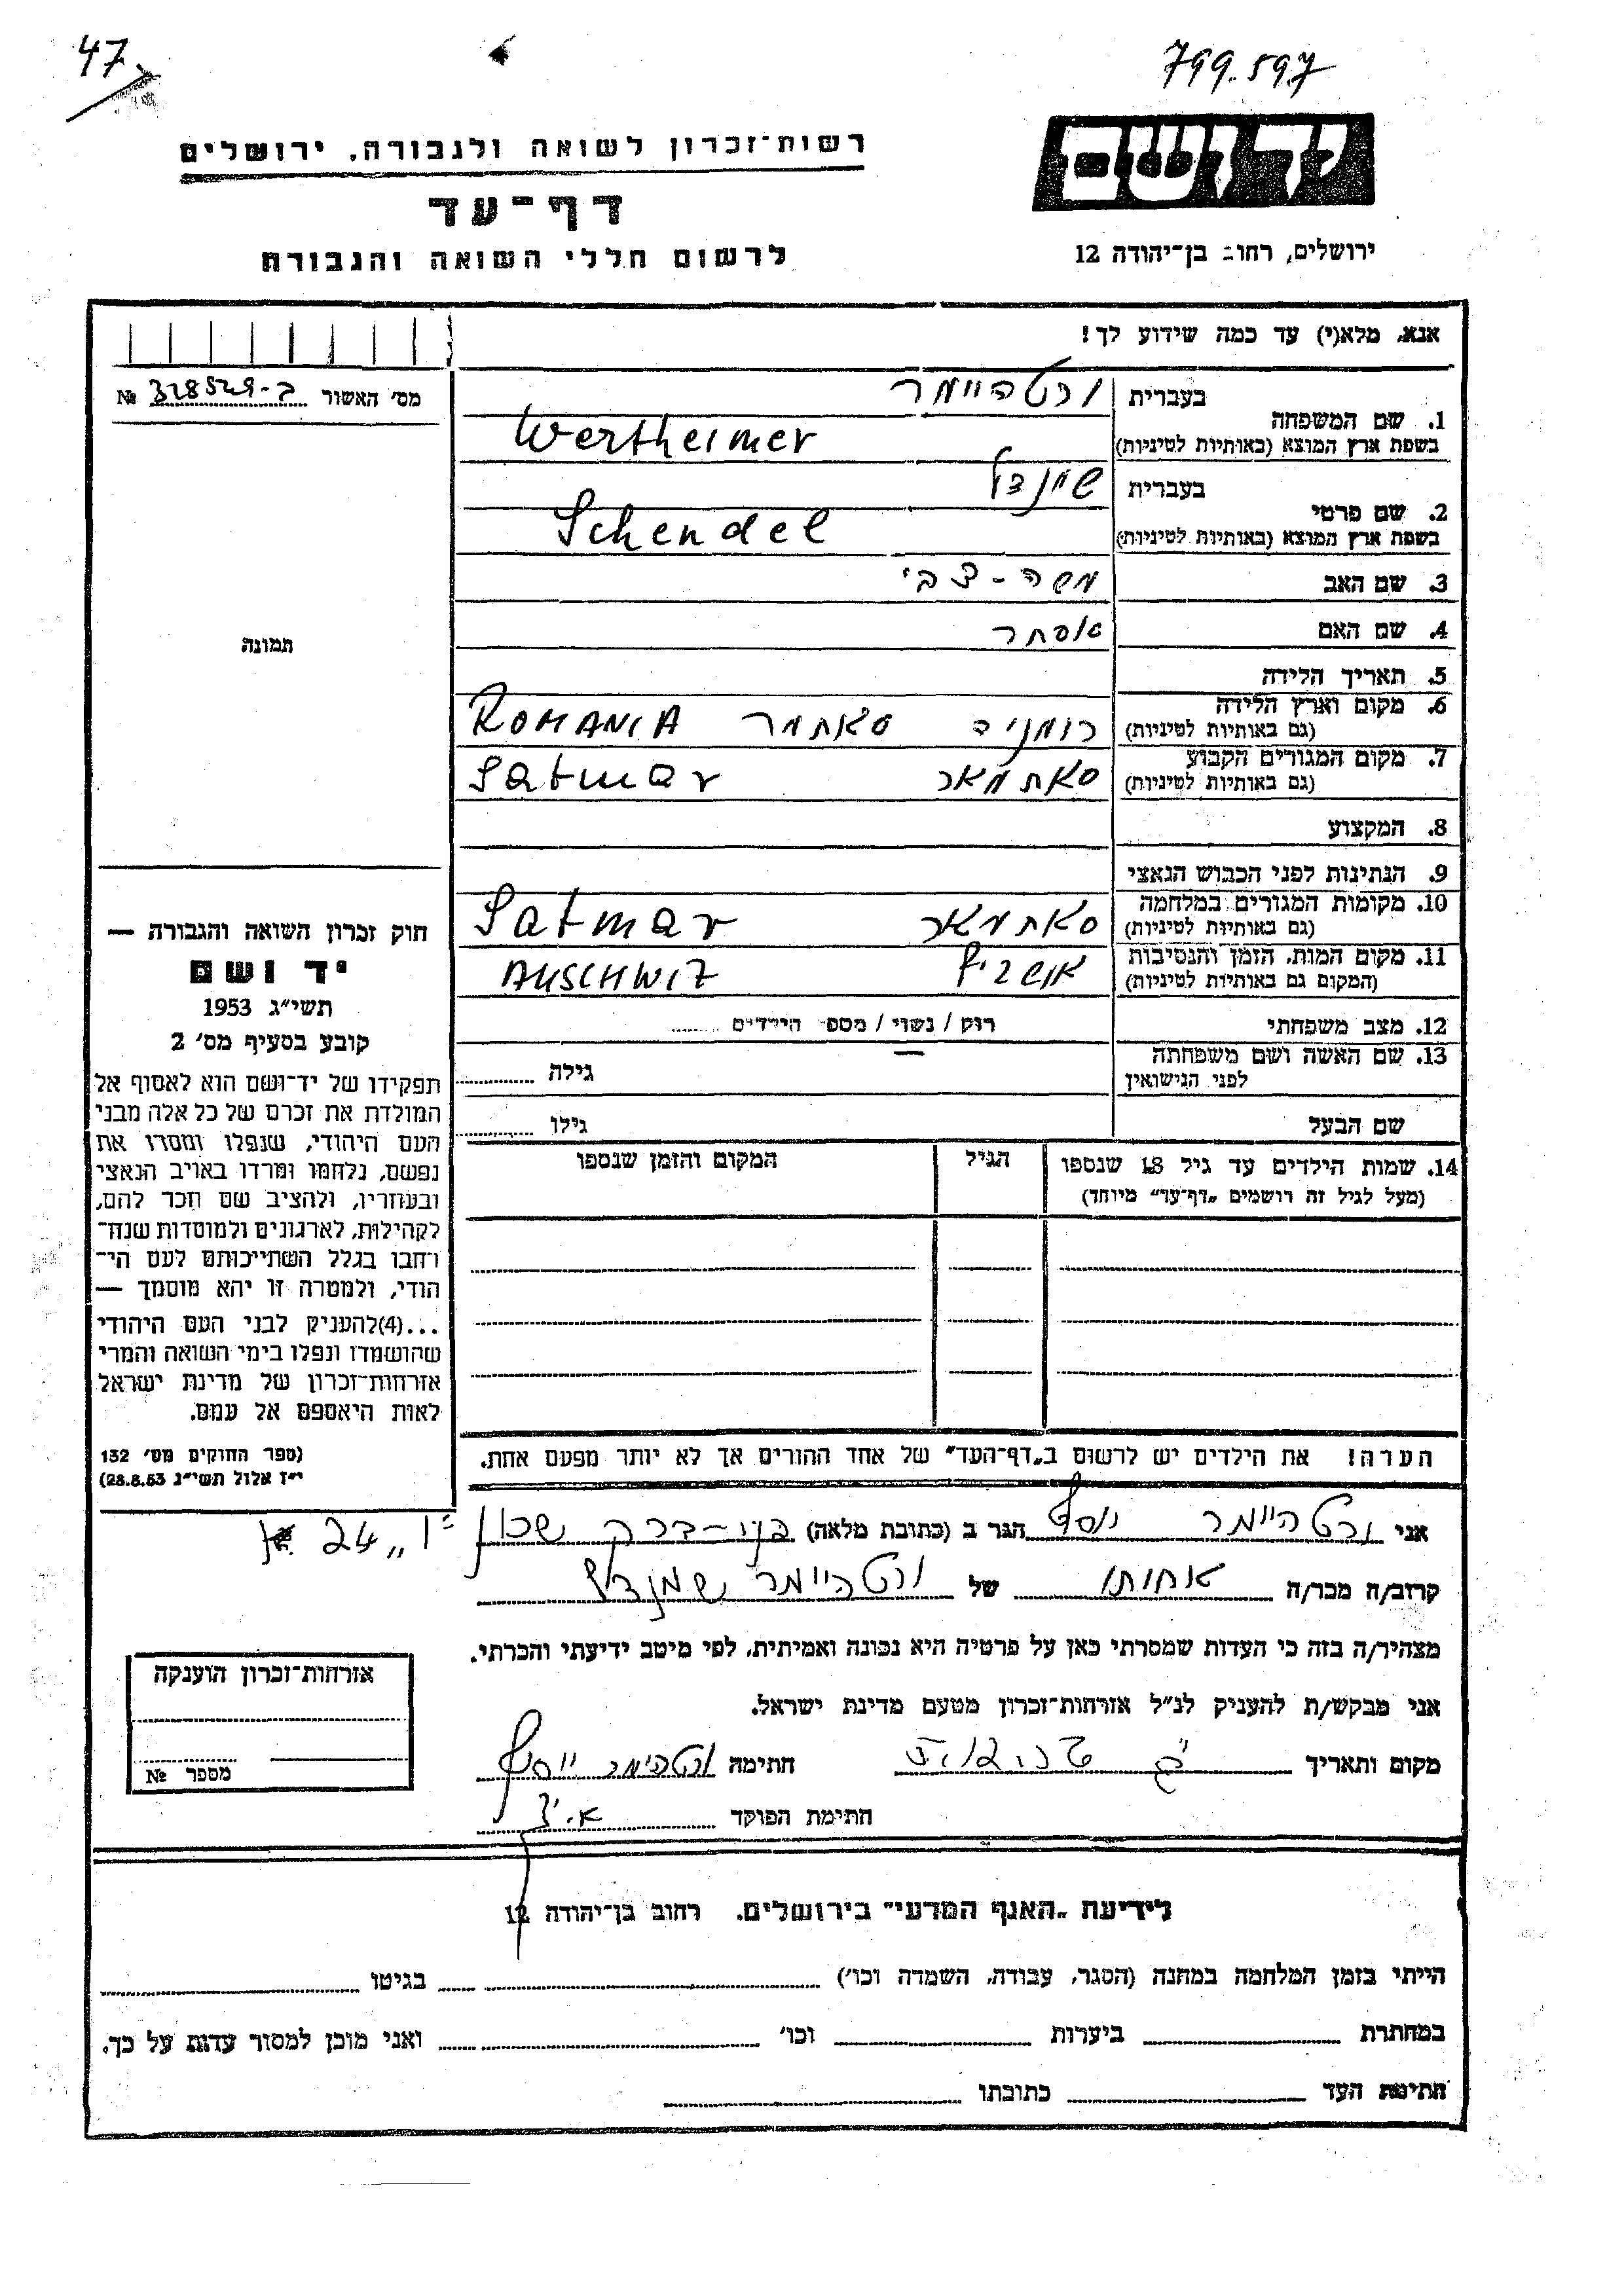 47
799.597
יד ושם
רשות־זכרון לשואה ולגבורה, ירושלים
דף־עד
לרשום חללי השואה והגבורה
ירושלים, רחוב בן־יהודה 12
אנא, מלא(י) עד כמה שידוע לך!
מס' האשור 328529-ב №
1. שם המשפחה
בעברית ורטהיימר
בשפת ארץ המוצא (באותיות לטיניות) Wertheimer
2. שם פרטי
בעברית שיינדל
בשפת ארץ המוצא (באותיות לטיניות) Schendel
3. שם האב משה-צבי
4. שם האם אסתר
תמונה
5. תאריך הלידה
6. מקום וארץ הלידה
(גם באותיות לטיניות) רומניה סאתמר ROMANIA
7. מקום המגורים הקבוע
(גם באותיות לטיניות) סאתמאר Satmar
8. המקצוע
9. הנתינות לפני הכבוש הנאצי
10. מקומות המגורים במלחמה
(גם באותיות לטיניות) סאתמאר Satmar
11. מקום המות, הזמן והנסיבות
(המקום גם באותיות לטיניות) אושביץ AUSCHWIZ
12. מצב משפחתי רוק / נשוי / מספר הילדים
13. שם האשה ושם משפחתה
לפני הנישואין גילה
שם הבעל גילו
14. שמות הילדים עד גיל 18 שנספו הגיל המקום והזמן שנספו
(מעל לגיל זה רושמים „דף־עד" מיוחד)
חוק זכרון השואה והגבורה —
יד ושם
תשי"ג 1953
קובע בסעיף מס' 2
תפקידו של יד־ושם הוא לאסוף אל
המולדת את זכרם של כל אלה מבני
העם היהודי, שנפלו ומסרו את
נפשם, נלחמו ומרדו באויב הנאצי
ובעוזריו, ולהציב שם וזכר להם,
לקהילות, לארגונים ולמוסדות שנח־
רבו בגלל השתייכותם לעם הי־
הודי, ולמטרה זו יהא מוסמך —
...(4)להעניק לבני העם היהודי
שהושמדו ונפלו בימי השואה והמרי
אזרחות־זכרון של מדינת ישראל
לאות היאספם אל עמם.
(ספר החוקים מס' 132
י"ז אלול תשי"ג 28.8.53)
הערה! את הילדים יש לרשום ב„דף־העד" של אחד ההורים אך לא יותר מפעם אחת.
אני ורטהיימר יוסף הגר ב (כתובת מלאה) בני-ברק שכון 24
קרוב/ה מכר/ה אחותו של ורטהיימר
מצהיר/ה בזה כי העדות שמסרתי כאן על פרטיה היא נכונה ואמיתית, לפי מיטב ידיעתי והכרתי.
אני מבקש/ת להעניק לנ"ל אזרחות־זכרון מטעם מדינת ישראל.
מקום ותאריך חתימה ורטהימר יוסף
חתימת הפוקד
אזרחות־זכרון הוענקה
מספר №
לידיעת „האגף המדעי" בירושלים, רחוב בן־יהודה 12
הייתי בזמן המלחמה במחנה (הסגר, עבודה, השמדה וכו') בגיטו
במחתרת ביערות וכו' ואני מוכן למסור עדות על כך.
חתימת העד כתובתו